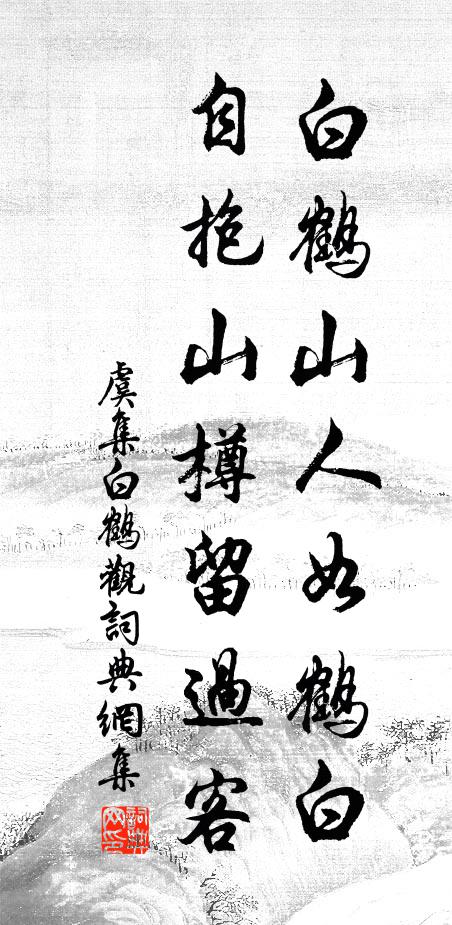 白鶴山人如鶴白
自抱山樽留過客
虞集白鶴觀詞典網集